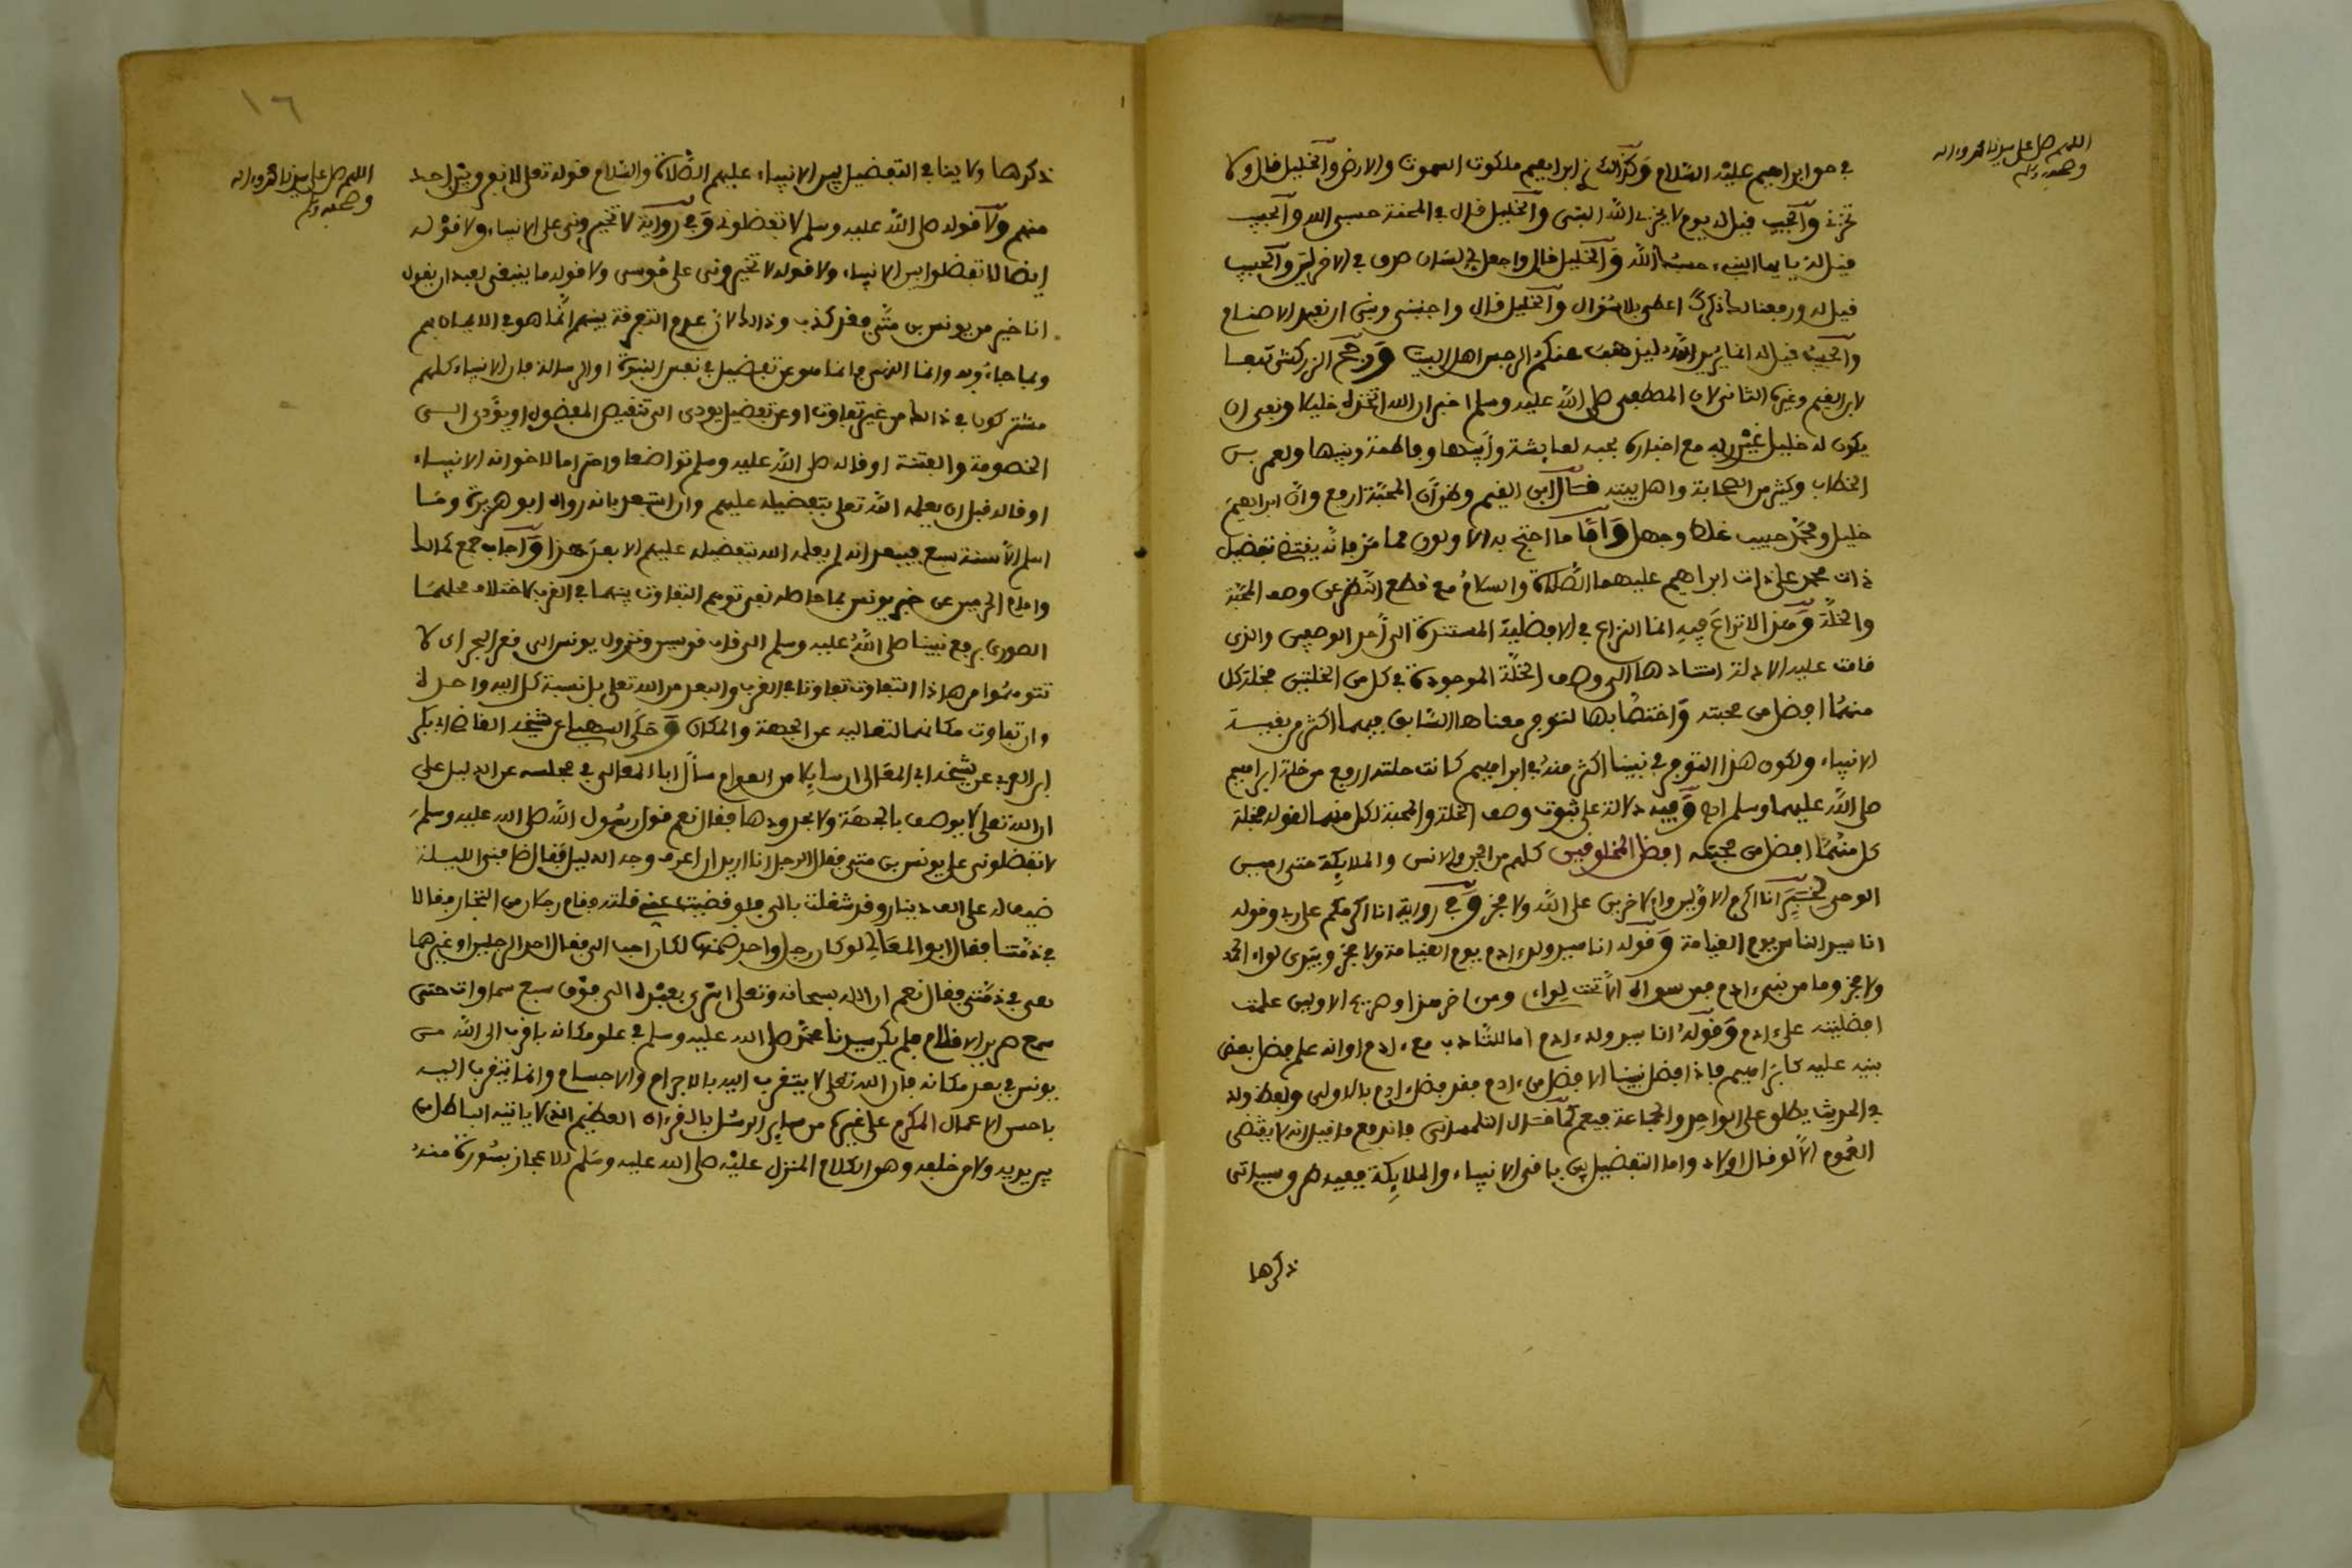 اللهم صل على سيدنا محمد واله
وصحبه وسلم
في حق ابراهيم عليه السلام وكذالك نرى ابراهيم ملكوت السموت والارض والخليل قال ولا
تخزني والحبيب قيل له يوم لا يخزى الله النبى والخليل قال في المحنة حسبى الله والحبيب
قيل له يا ايها النبيء حسبك الله والخليل قال واجعل لي لسان صدق في الاخرين والحبيب
قيل له ورفعنا لك ذكرك اعطى بلا سؤال والخليل قال واجنبنى وبنى ان نعبد الاصنام
والحبيب قيل له انما يريد الله ليذهب عنكم الرجس اهل البيت ورجح الزركشى تبعا
لابن القيم وغيره الثانى لان المصطفى صلى الله عليه وسلم اخبر ان الله اتخذه خليلا ونفى ان
يكون له خليل غير ربه مع اخباره بحبه لعايشة وابيها وفاطمة وبنيها ولعمر بن
الخطاب وكثير من الصحابة واهل بيته قال ابن القيم وظن ان المحبة ارفع وان ابراهيم
خليل ومحمد حبيب غلط وجهل واما ما احتج به الاولون مما مر فانه يقتضى تفضيل
ذات محمد على ذات ابراهيم عليهما الصلاة والسلام مع قطع النظر عن وصف المحبة
والخلة وهذا لا نزاع فيه انما النزاع في الافضلية المستندة الى احد الوصفين والذي
قامت عليه الادلة استنادها الى وصف الخلة الموجودة في كل من الخليلين فخلة كل
منهما افضل من محبته واختصا بها لتوفر معناها السابق فيهما اكثر من بقية
الانبياء ولكون هذا التوفر في نبينا اكثر منه في ابراهيم كانت خلته ارفع من خلة ابراهيم
صلى الله عليهما وسلم اه وفيه دلالة على ثبوت وصف الخلة والمحبة لكل منهما لقوله فخلة
كل منهما افضل من محبته افضل المخلوقين كلهم من الجن والانس والملايكة حتى امين
الوحى لخبر انا اكرم الاولين والاخرين على الله ولا فخر وفي رواية انا اكرمكم على ربي وقوله
انا سيد الناس يوم القيامة وقوله انا سيد ولد ءادم يوم القيامة ولا فخر وبيدى لواء الحمد
ولا فخر وما من نبيء ءادم فمن سواه الا تحت لواءى ومن اخر هذا وصريح الاولين علمت
افضليته على ءادم وقوله انا سيد ولد ءادم اما للتادب مع ءادم او انه علم فضل بعض
بنيه عليه كابراهيم فاذا فضل نبينا الافضل من ءادم فقد فضل ءادم بالاولى ولفظ ولد
في الحديث يطلق على الواحد والجماعة فيعم كما قال التلمسانى فاندفع ما قيل انه لا يقتضى
العموم الا لو قال اولاد واما التفضيل بين باقى الانبياء والملايكة ففيه طرق سياتى
ذكرها
١٦
اللهم صل على سيدنا محمد واله
وصحبه وسلم
ذكرها ولا ينافي التفضيل بين الانبياء عليهم الصلاة والسلام قوله تعلى لا نفرق بين احد
منهم ولا قوله صلى الله عليه وسلم لا تفضلونى وفي رواية لا تخيرونى على الانبياء ولا قوله
ايضا لا تفضلوا بين الانبياء ولا قوله لا تخيرونى على موسى ولا قوله ما ينبغى لعبد ان يقول
انا خير من يونس بن متى فقد كذب وذالك لان عدم التفرقة بينهم انما هو في الايمان بهم
وبما جاءوا به واما النهى فانما هو عن تفضيل في نفس النبوة او الرسالة فان الانبياء كلهم
مشتركون في ذالك من غير تفاوت او عن تفضيل يودى الى تنقيص المفضول او يؤدى الى
الخصومة والفتنة او قاله صلى الله عليه وسلم تواضعا واحتراما لاخوانه الانبياء
او قاله قبل ان يعلمه الله تعلى بتفضيله عليهم وان استبعد بانه رواه ابو هريرة وما
اسلم الا سنة سبع فيبعد انه لم يعلمه الله بتفضيله عليهم الا بعد هذا واجاب جمع كمالك
وامام الحرمين عن خبر يونس بما حاصله نفى توهم التفاوت بينهما في القرب لاختلاف محلهما
الصورى برفع نبينا صلى الله عليه وسلم الى قاب قوسين ونزول يونس الى قعر البحر اى لا
تتوهموا من هاذا التفاوت تفاوتا في القرب والبعد من الله تعلى بل نسبة كل اليه واحدة
وان تفاوت مكانهما لتعاليه عن الجهة والمكان وحكى السهيلى عن شيخه القاضى ابي بكر
ابن العربي عن شيخه ابي المعالى ان سايلا من العوام سأل ابا المعالى في مجلسه عن الدليل على
ان الله تعلى لا يوصف بالجهة ولا بحدودها فقال نعم قول رسول الله صلى الله عليه وسلم
لا تفضلونى على يونس بن متى فقال الرجل انا اريد ان اعرف وجه الدليل فقال ضافنى الليلة
ضيف له على الف دينار وقد شغلت بالى فلو قضيت عنى قلته فقام رجلان من التجار فقالا
في ذمتنا فقال ابو المعالي لو كان رجل واحد ضمنه لكان احب الى فقال احد الرجلين او غيرهما
هى في ذمتى فقال نعم ان الله سبحانه وتعلى اسرى بعبده الى فوق سبع سماوات حتى
سمع صرير الاقلام فلم يكن سيدنا محمد صلى الله عليه وسلم في علو مكانه باقرب الى الله من
يونس في بعد مكانه فان الله تعلى لا يتقرب اليه بالاجرام والاجسام وانما يتقرب اليه
باحسن الاعمال المكرم على غيره من ساير الرسل بالقرءان العظيم الذى لا ياتيه الباطل من
بين يديه ولا من خلفه وهو الكلام المنزل عليه صلى الله عليه وسلم للاعجاز بسورة منه